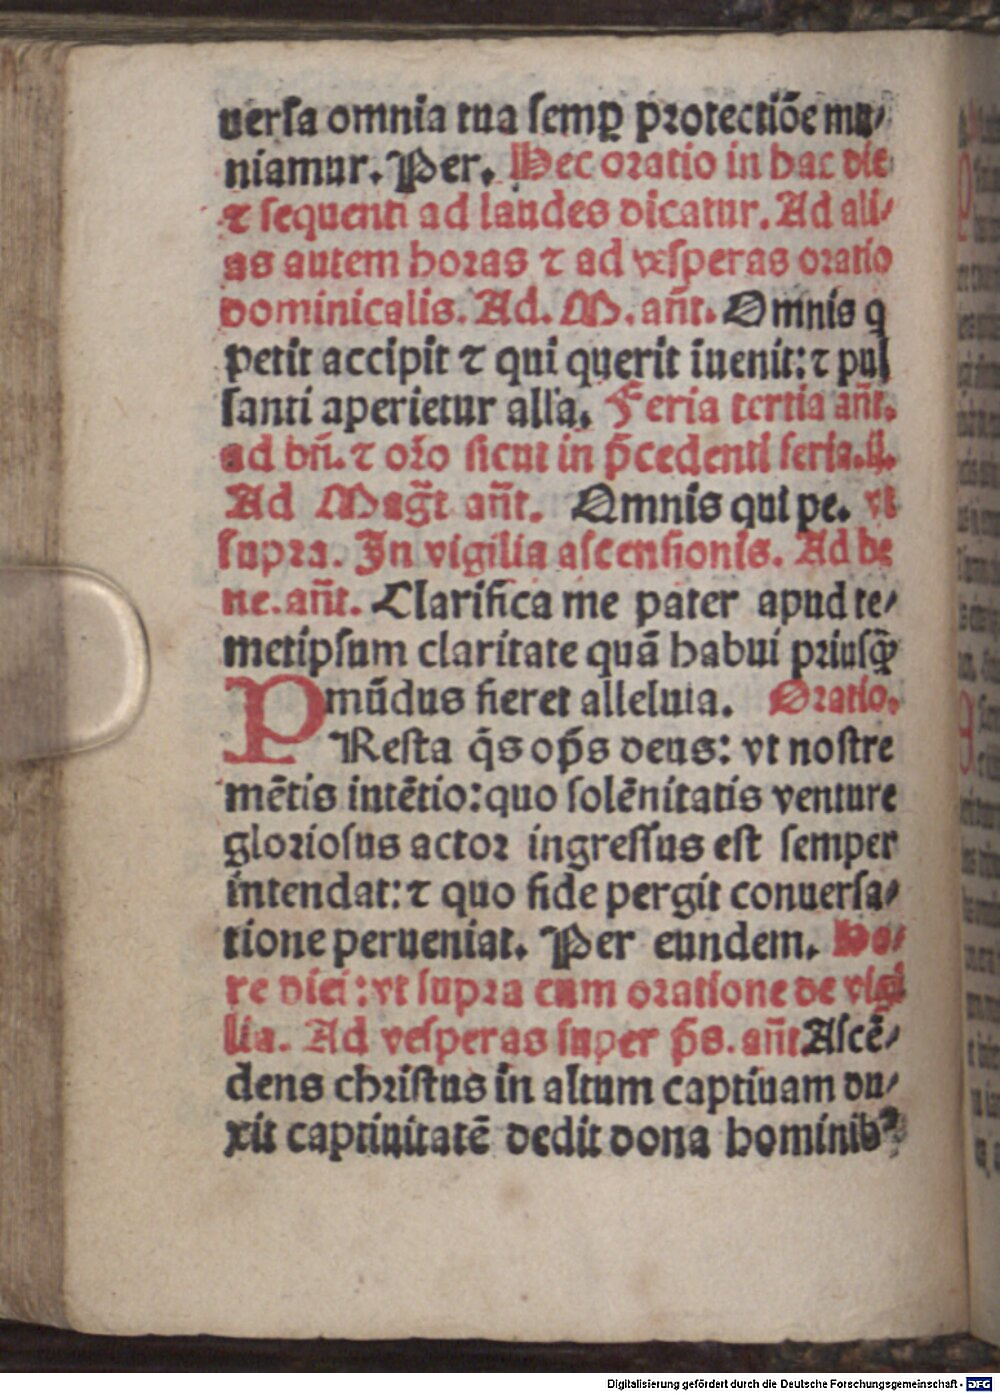 uerſa omnia tua ſemꝑ ꝓtectiõe mu⸗
niamur. Per. Hec oratio in hac die
⁊ ſequenti ad laudes dicatur. Ad ali⸗
as autem horas ⁊ ad veſperas oratio
dominicalis. Ad. M. añt. Omnis q
petit accipit ⁊ qui querit iuenit: ⁊ pul
ſanti aperietur alľa. Feria tertia añt.
ad bñ. ⁊ oꝛo ſicut in p̃cedenti feria. ij.
Ad Mag̃t añt. Omnis qui pe. vt
ſupꝛa. In vigilia aſcenſionis. Ad be
ne. añt. Clarifica me pater apud te⸗
metipſum claritate quã habui pꝛiuſꝙ̃
mũdus fieret alleluia. Oꝛatio.
PReſta q̃s op̃s deus: vt noſtre
mẽtis intẽtio: quo ſolẽnitatis venture
gloꝛioſus actoꝛ ingreſſus eſt ſemper
intendat: ⁊ quo fide pergit conuerſa⸗
tione perueniat. Per eundem. Ho⸗
re diei: vt ſupꝛa cum oꝛatione de vigi
lia. Ad veſperas ſuper p̃s. añt. Aſcẽ⸗
dens chꝛiſtus in altum captiuam du⸗
xit captiuitatẽ dedit dona hominibꝰ
Digitalisierung gefördert durch die Deutsche Forschungsgemeinschaft - DFG